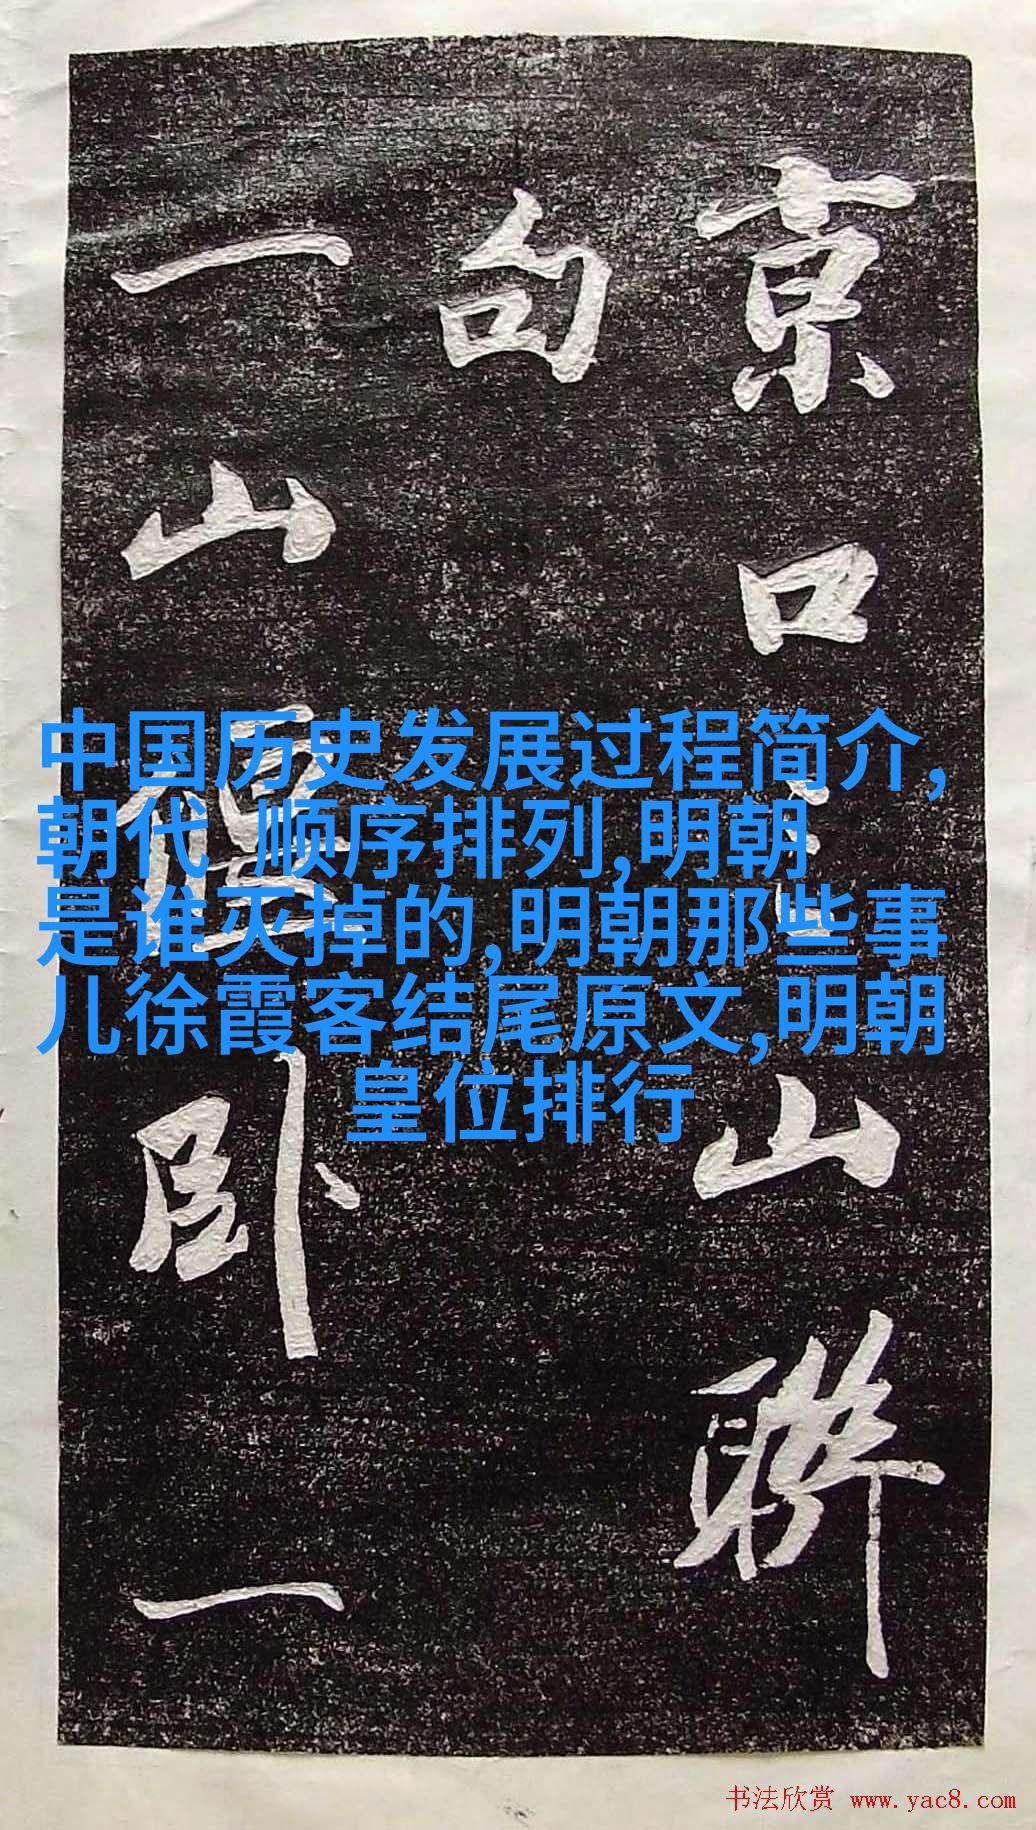 京口三山聯
句
一山擑卧一
中国历史发展过程简介,
朝代 顺序排列,明朝
是谁灭掉的,明朝那些事
儿徐霞客结尾原文,明朝
皇位排行
书法欣赏 www.yac8.com